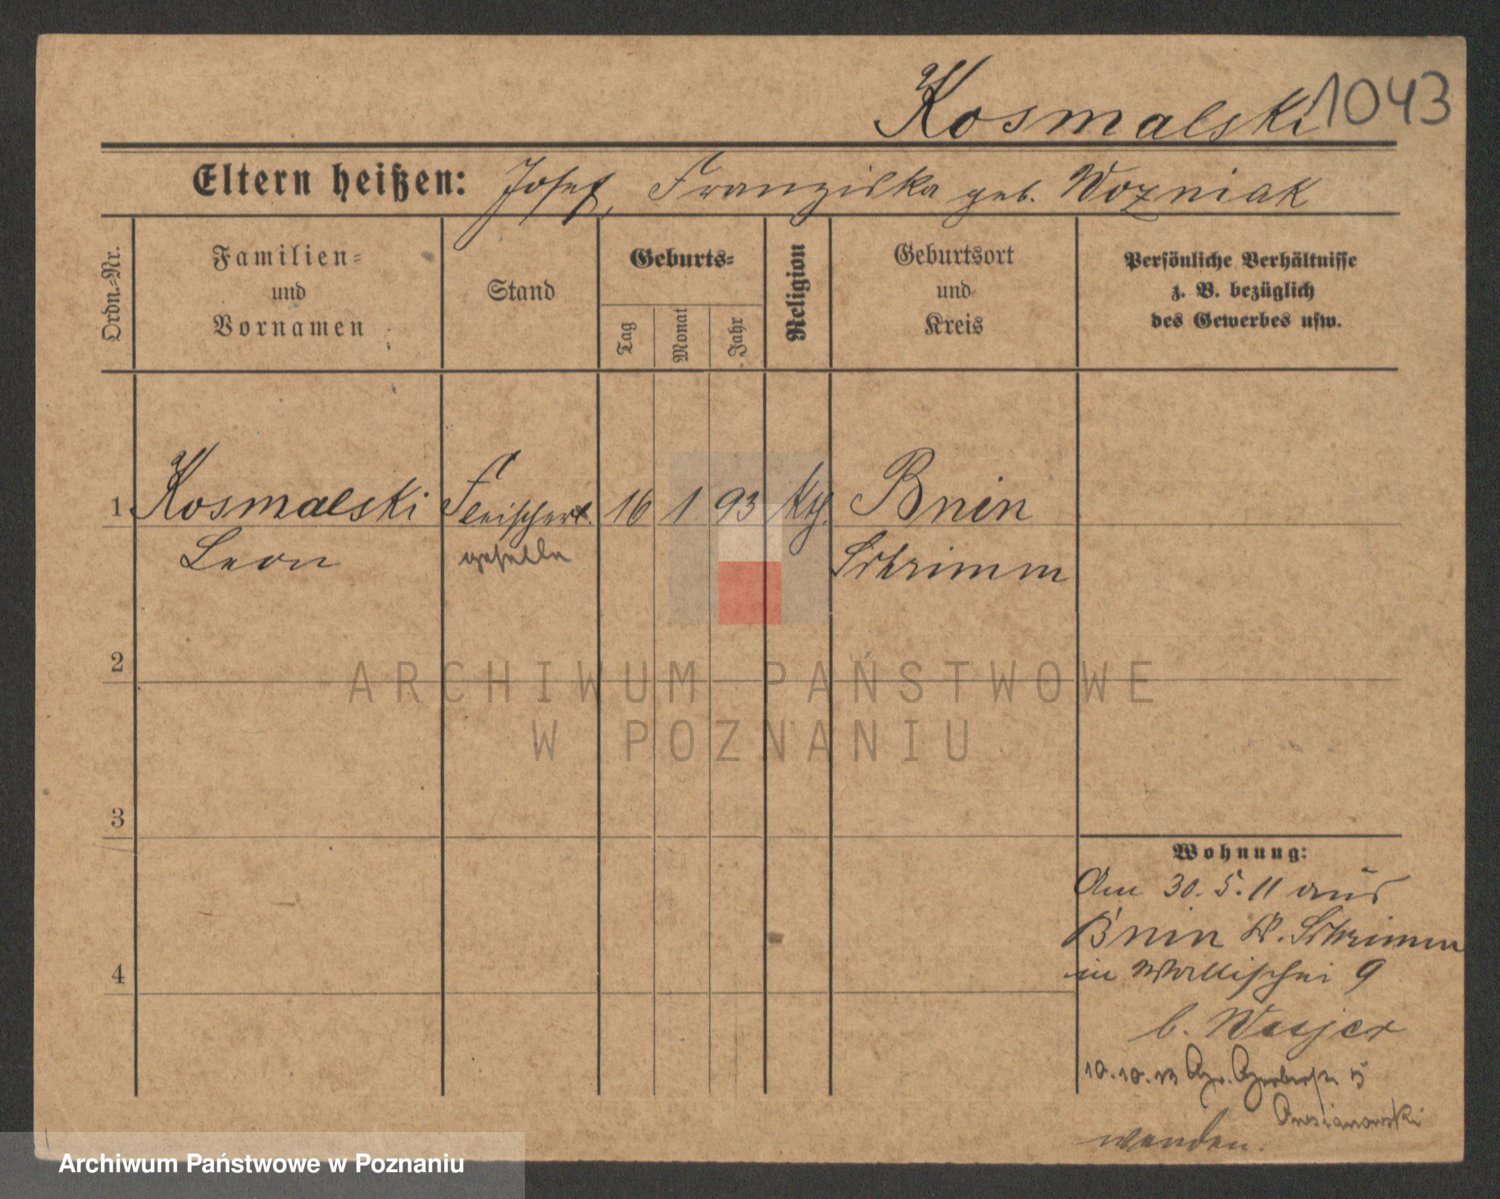 Kosmalski 1043
Eltern heißen: Josef, Franziska geb. Wozniak
Ordn.-Nr.
Familien-
und
Vornamen
Stand
Geburts-
Tag
Monat
Jahr
Religion
Geburtsort
und
Kreis
Persönliche Verhältnisse
z. B. bezüglich
des Gewerbes usw.
1 Kosmalski Fleischer 16 1 93 kth. Bnin
Leon geselle Schrimm
2
ARCHIWUM PAŃSTWOWE
W POZNANIU
3
Wohnung:
Am 30.5.11 aus
Bnin K. Schrimm
in Wallischei 9
4
b.
10.10.13 Gr. Gerberstr 5
wenden.
Archiwum Państwowe w Poznaniu